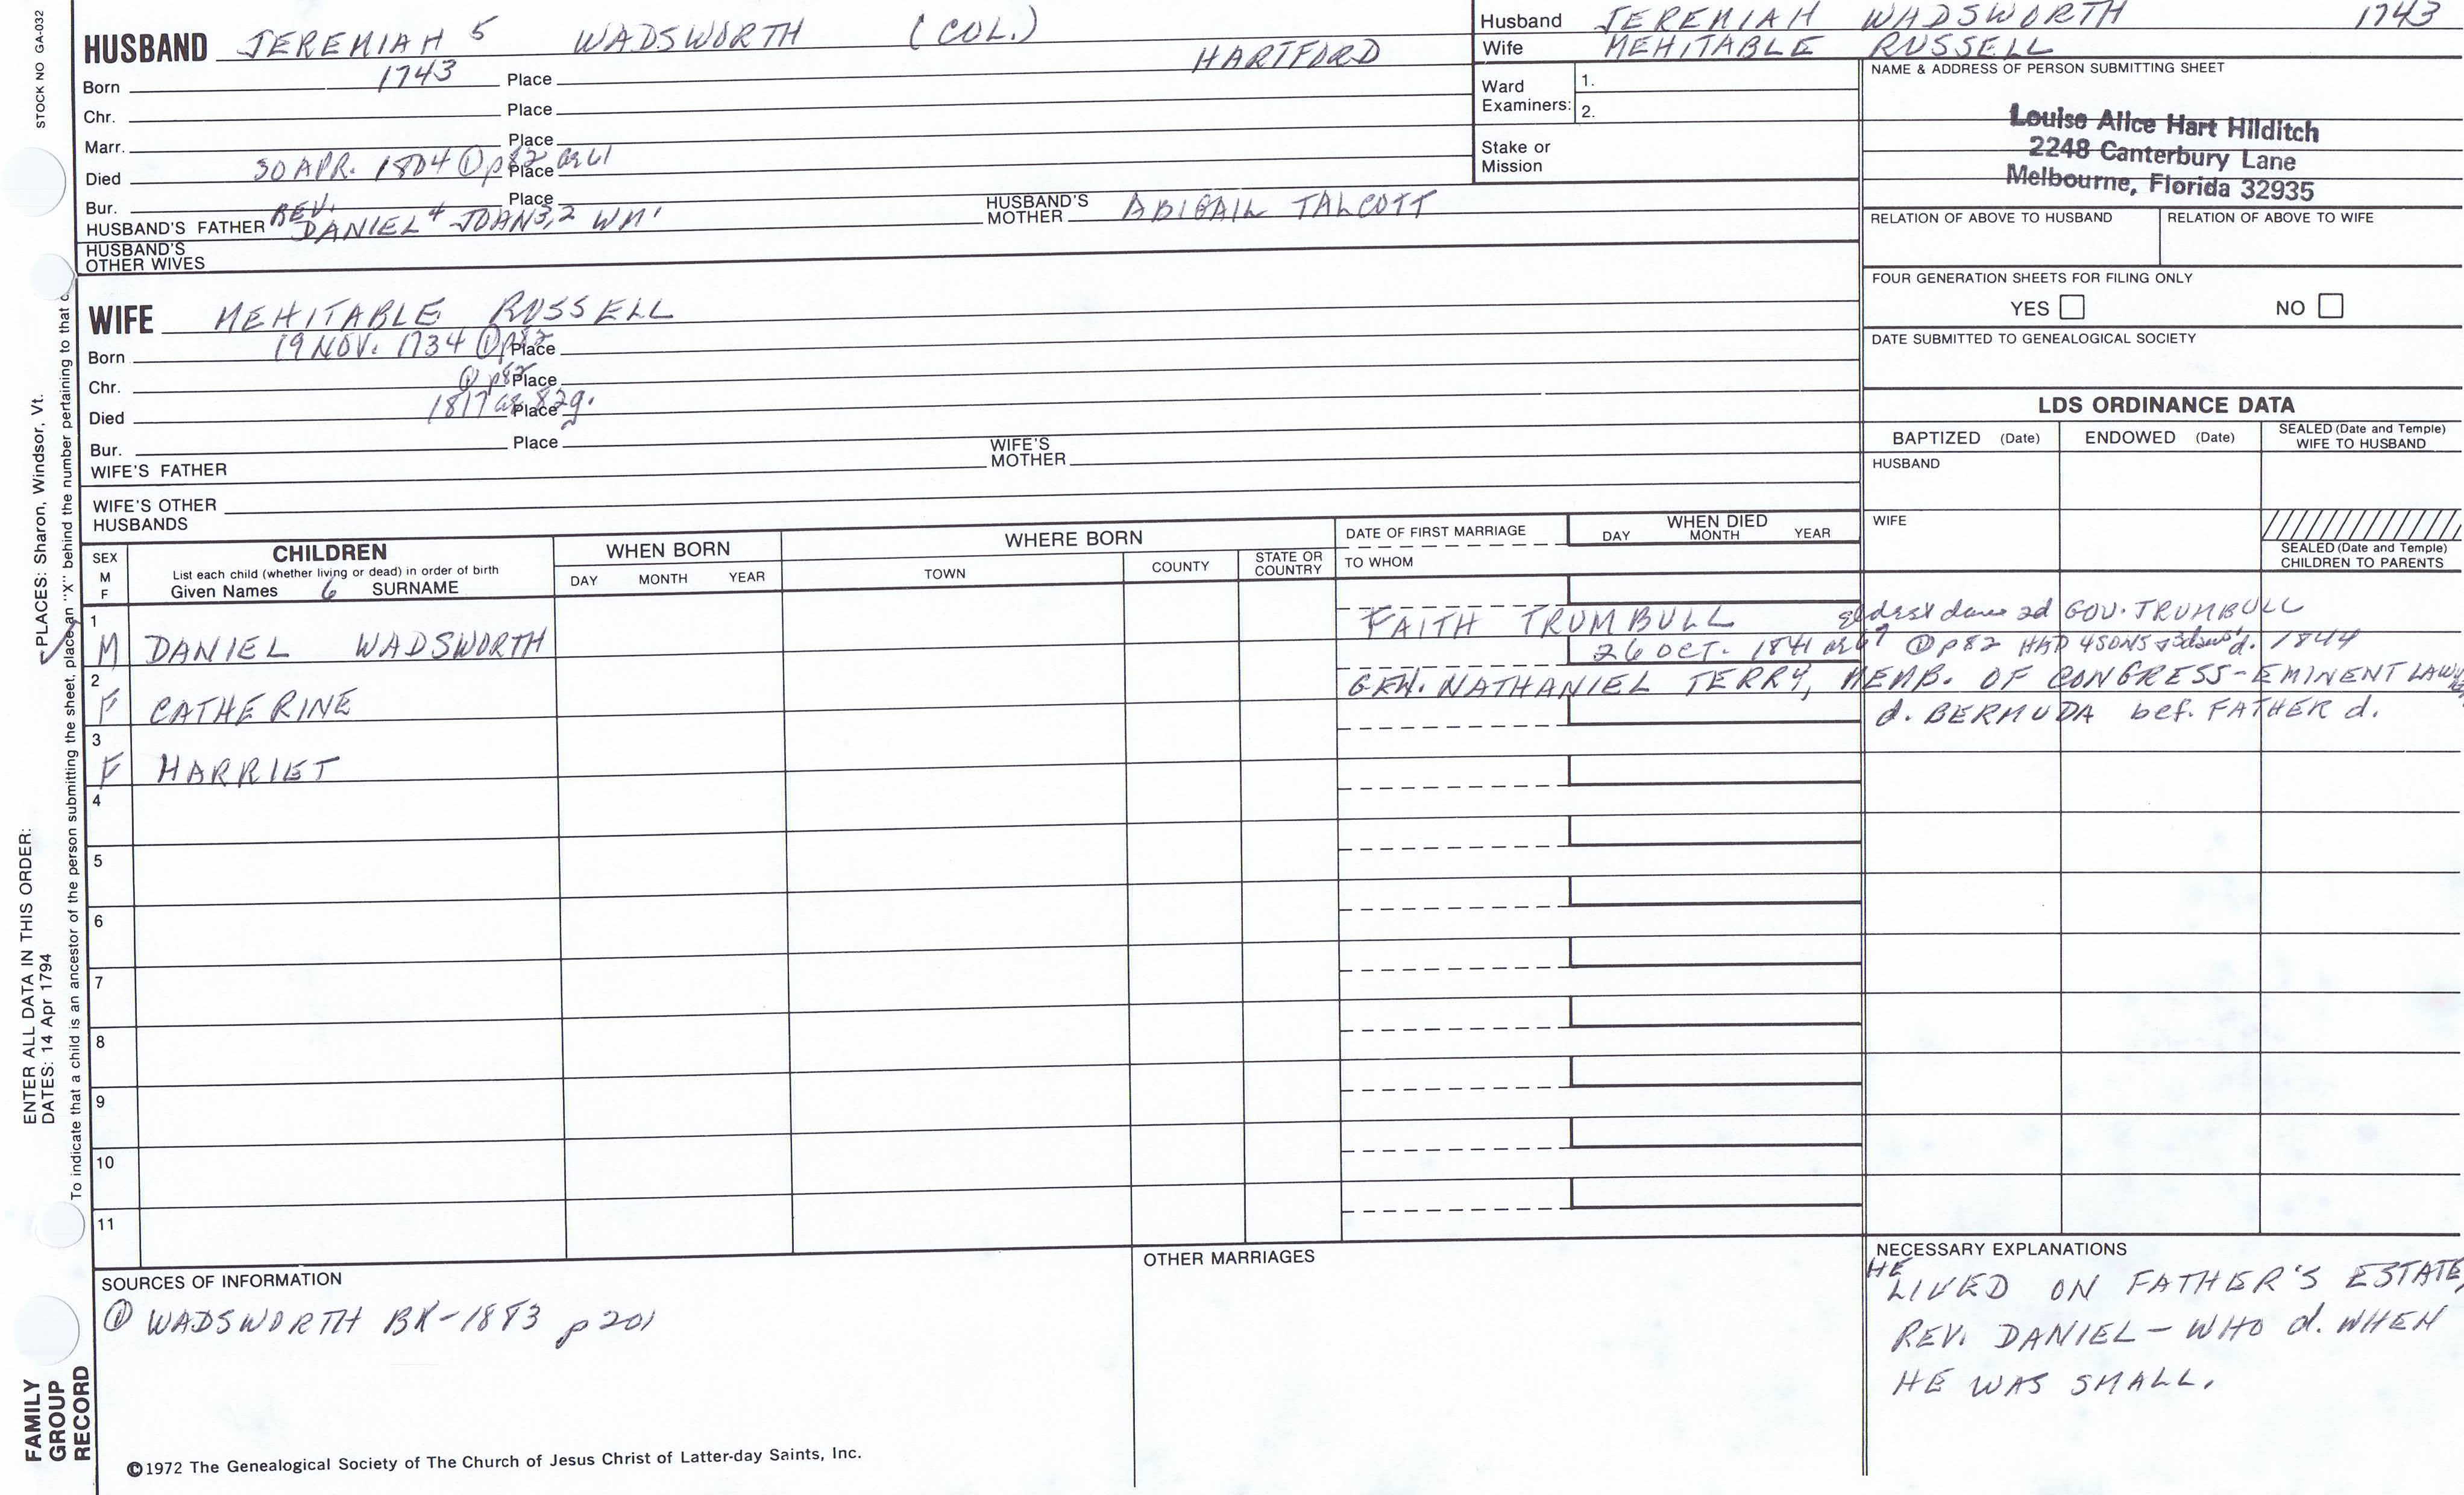 STOCK NO GA-032
HUSBAND JEREMIAH 5 WADSWORTH (COL.)
Born 1743 Place HARTFORD
Chr. Place
Marr. Place
Died 30 APR. 1804 ① p82 ae 61 Place
Bur. Place
HUSBAND'S FATHER REV. DANIEL 4 JOHN 3,2 WM 1 HUSBAND'S MOTHER ABIGAIL TALCOTT
HUSBAND'S OTHER WIVES
WIFE MEHITABLE RUSSELL
Born 19 NOV. 1734 ① p82 Place
Chr. ① p82 Place
Died 1817 ae 82y. Place
Bur. Place
WIFE'S FATHER WIFE'S MOTHER
WIFE'S OTHER HUSBANDS
Husband JEREMIAH WADSWORTH 1743
Wife MEHITABLE RUSSELL
Ward Examiners: 1. 2.
Stake or Mission
NAME & ADDRESS OF PERSON SUBMITTING SHEET
Louise Alice Hart Hilditch
2248 Canterbury Lane
Melbourne, Florida 32935
RELATION OF ABOVE TO HUSBAND RELATION OF ABOVE TO WIFE
FOUR GENERATION SHEETS FOR FILING ONLY
YES NO
DATE SUBMITTED TO GENEALOGICAL SOCIETY
LDS ORDINANCE DATA
BAPTIZED (Date) ENDOWED (Date) SEALED (Date and Temple) WIFE TO HUSBAND
HUSBAND
WIFE
SEALED (Date and Temple) CHILDREN TO PARENTS
SEX M F
CHILDREN
List each child (whether living or dead) in order of birth
Given Names 6 SURNAME
WHEN BORN
DAY MONTH YEAR
WHERE BORN
TOWN COUNTY STATE OR COUNTRY
DATE OF FIRST MARRIAGE
TO WHOM
WHEN DIED
DAY MONTH YEAR
1 M DANIEL WADSWORTH FAITH TRUMBULL eldest dau 2d GOV. TRUMBULL
26 OCT. 1841 ① p82 HAD 4 SONS & 3 daus d. 1844
2 F CATHERINE GEN. NATHANIEL TERRY, MEMB. OF CONGRESS-EMINENT LAWYER
d. BERMUDA bef. FATHER d.
3 F HARRIET
4
5
6
7
8
9
10
11
SOURCES OF INFORMATION
① WADSWORTH BK-1883 p 201
OTHER MARRIAGES
NECESSARY EXPLANATIONS
HE LIVED ON FATHER'S ESTATE,
REV. DANIEL - WHO d. WHEN
HE WAS SMALL.
©1972 The Genealogical Society of The Church of Jesus Christ of Latter-day Saints, Inc.
ENTER ALL DATA IN THIS ORDER:
DATES: 14 Apr 1794 PLACES: Sharon, Windsor, Vt.
To indicate that a child is an ancestor of the person submitting the sheet, place an "X" behind the number pertaining to that
FAMILY
GROUP
RECORD